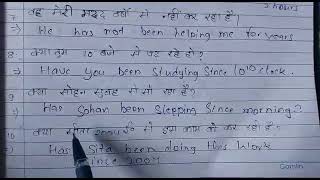 2 hours
7. वह मेरी मदद वर्षों से नहीं कर रहा है।
→ He has not been helping me for years
8. क्या तुम 10 बजे से पढ़ रहे हो?
→ Have you been studying since 10 o'clock.
9. क्या सोहन सुबह से सो रहा है?
→ Has Sohan been sleeping since morning?
10. क्या सीता से इस काम को कर रही है?
→ Has Sita been doing this work
since 2004